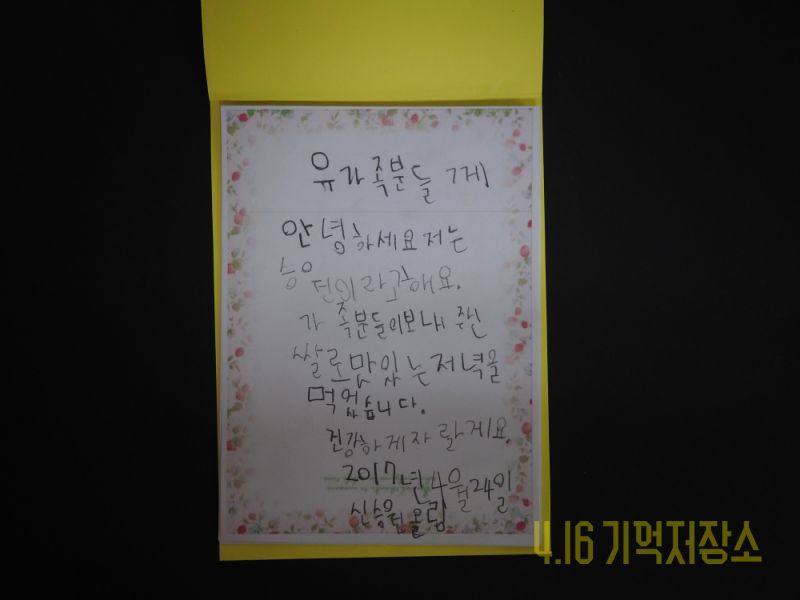 유가족분들 게
안녕하세요 저는
승원이라고해요.
가족분들이보내주신
쌀로맛있는저녁을
먹었습니다.
건강하게자랄게요.
2017년4월24일
신승원올림
4.16 기억저장소